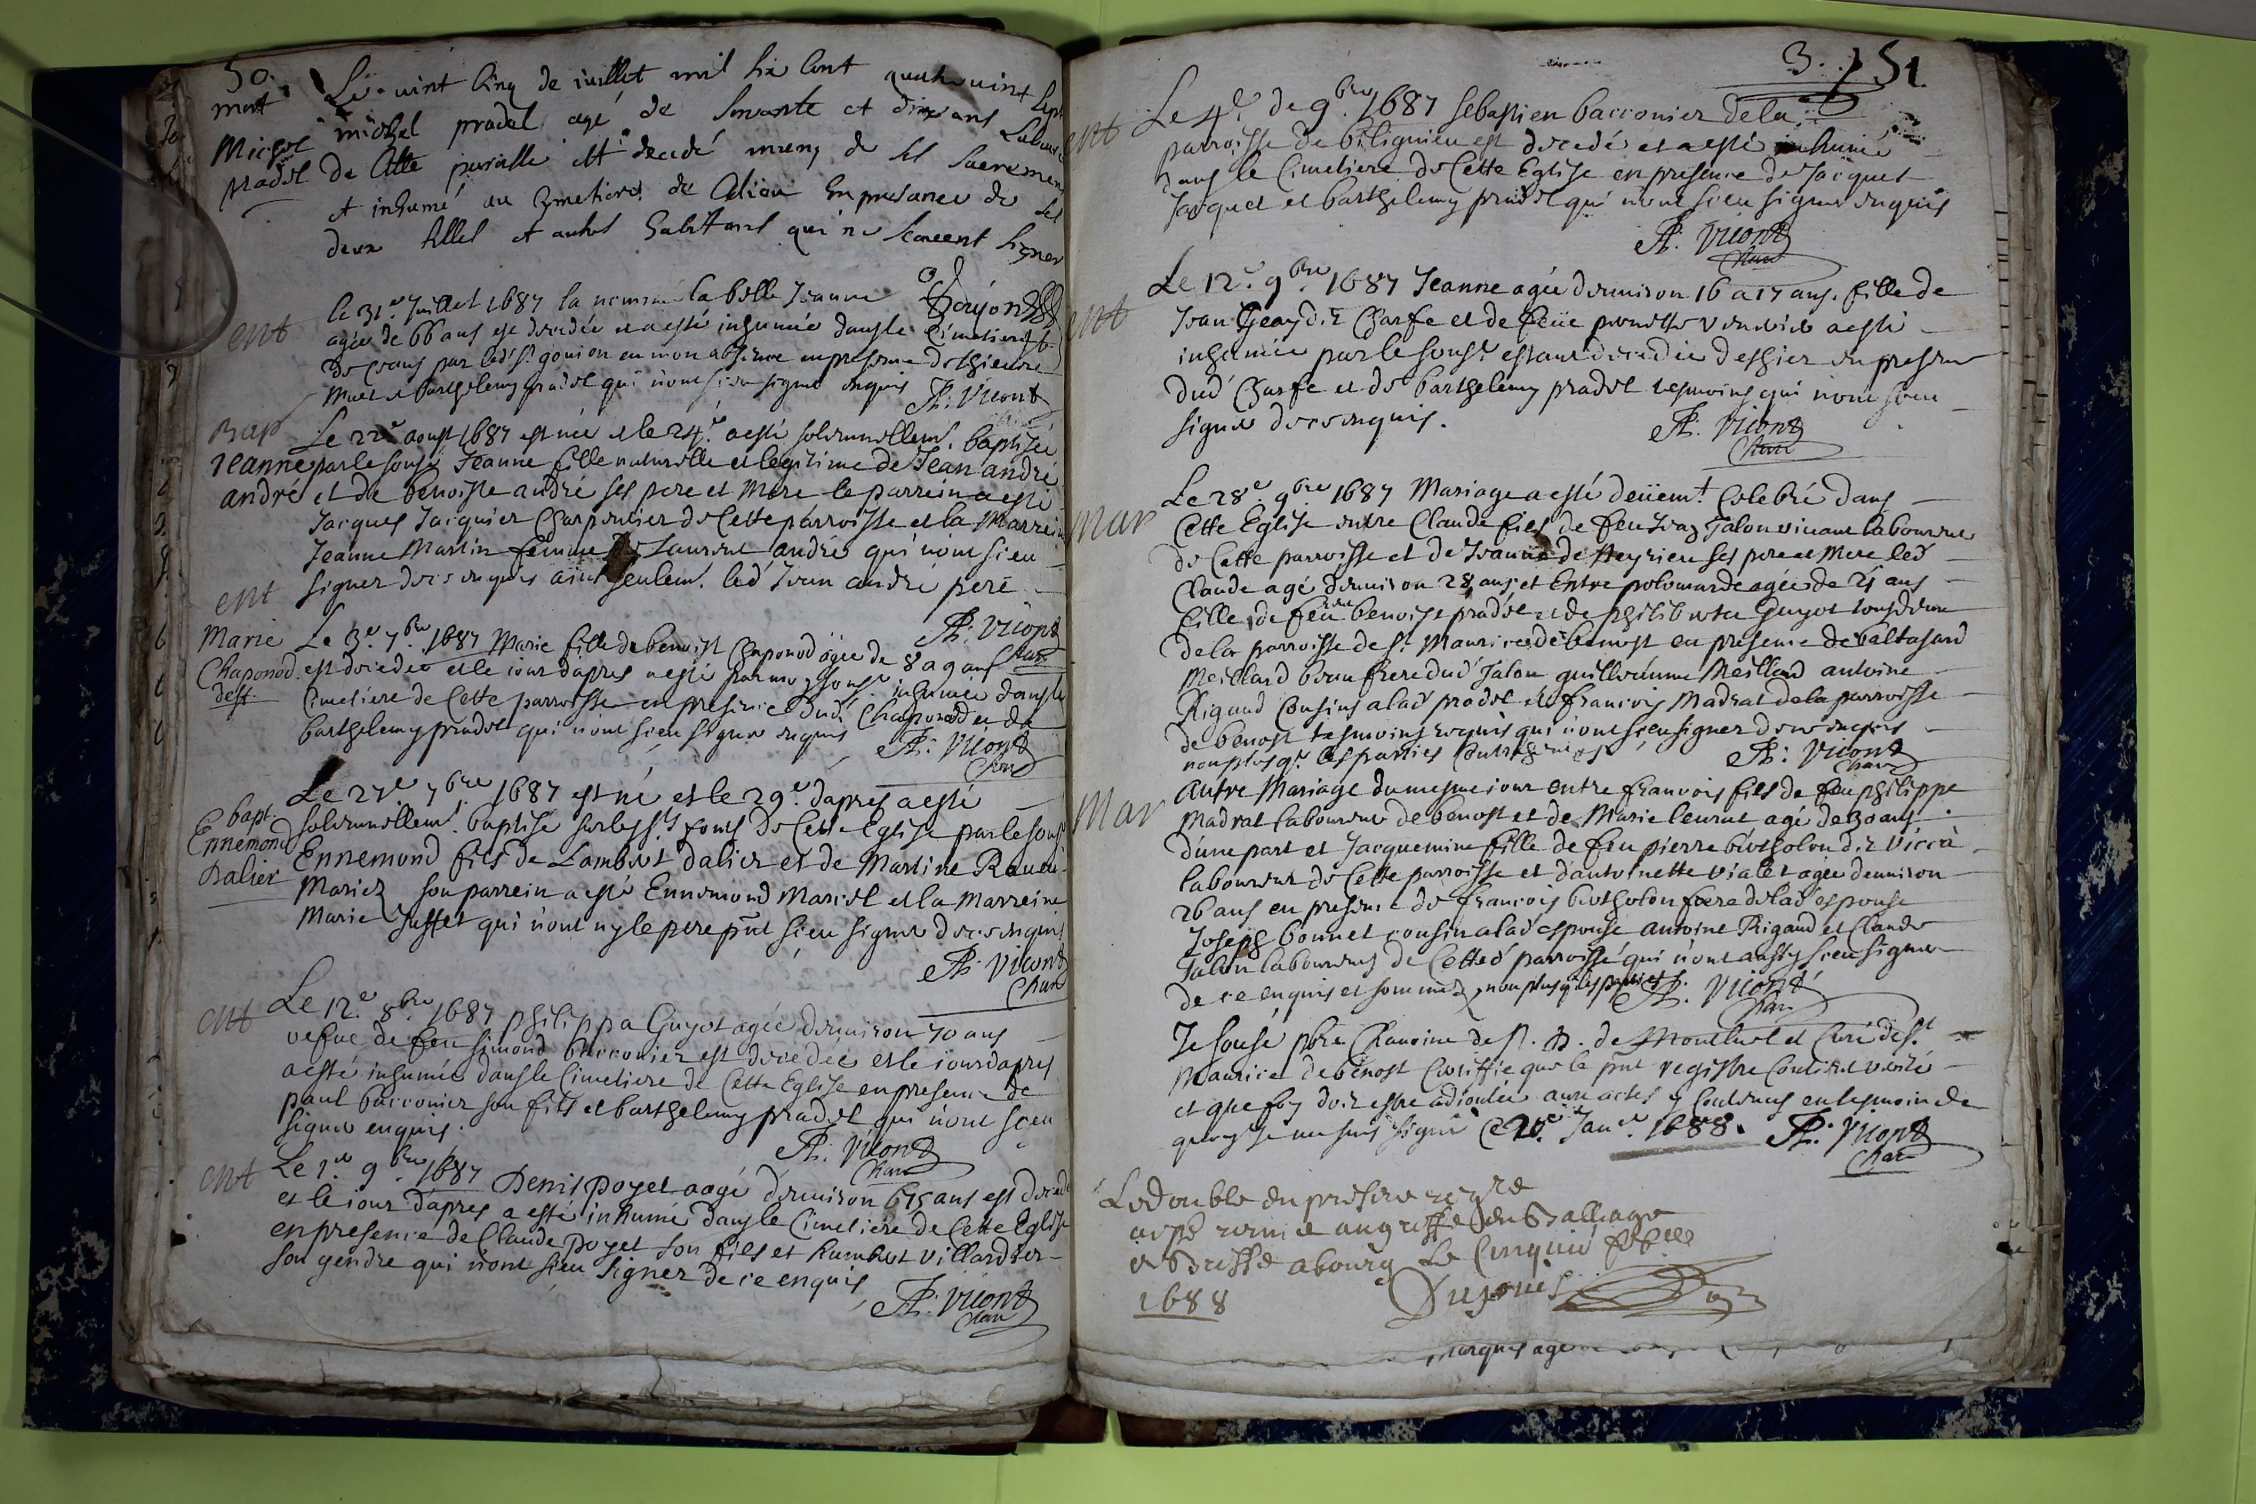 50.
mort
Michel
pradel
Le vint cinq de iuillet mil six cent quatre vint sept
michel pradel agé de soixante et dix ans Laboure
de Cette paroisse est decedé muny de ses sacremens
et inhumé au Cymetiere de Celieu En presance de ses
deux filles et autres habitans qui ne scavent signer
Goujon
ent
le 31e Juillet 1687 la nommée la belle Jeanne
agée de 66 ans est decedée et a esté inhumée dans le Cimetiere
de ceans par led' sr. goujon en mon absence en presence de
et barthelemy pradel qui n'ont sceu signer enquis
Ph: Vicont
Bap
Jeanne
andré
Le 22e aoust 1687 est née et le 24e a esté solemnellemt. baptisée
par le sousé Jeanne fille naturelle et legitime de Jean andré
et de benoiste andré ses pere et Mere le parrein a esté
Jacques Jacquier Charpentier de Cette parroisse et la Marreine
Jeanne Martin femme de Laurent andré qui n'ont sceu
signer de ce enquis ains seulemt. led' Jean andré pere
Ph: Vicont
Chan
ent
Marie
Chaponod
deff.
Le 3e 7bre 1687 Marie fille de benoist Chaponod agée de 8 a 9 ans
est decedée et le iour d'apres a esté par moy sousé. inhumée dans le
Cimetiere de Cette parroisse en presence dud' Chaponod et de
barthelemy pradel qui n'ont sceu signer enquis
Ph: Vicont
Chan
bapt.
Ennemond
Dalier
Le 27e 7bre 1687 est né et le 29e. d'apres a esté
solemnellemt. baptisé sur les sts fonts de Cette Eglise par le sousé
Ennemond fils de Lambert dalier et de Martine
Mariez son parrein a esté Ennemond Mariel et la Marreine
Marie Juffet qui n'ont ny le pere pnt sceu signer de ce enquis
Ph: Vicont
Chan
ent
Le 12e. 8bre. 1687 philippa Guyot agée d'environ 70 ans
vefue de feu simond bacconier est decedée et le iour d'apres
a esté inhumée dans le Cimetiere de Cette Eglise en presence de
paul bacconier son fils et barthelemy pradel qui n'ont sceu
signer enquis.
Ph: Vicont
Chan
ent
Le 1er 9bre 1687 Denis poyet aagé d'environ 65 ans est decedé
et le iour d'apres a esté inhumé dans le Cimetiere de Cette Eglise
en presence de Claude poyet son fils et humbert villardier
son gendre qui n'ont sceu signer de ce enquis
Ph: Vicont
Chan
3. 51.
ent
Le 4e de 9bre 1687 sebastien bacconier de la
parroisse de bilignieu est decedé et a esté inhumé
dans le Cimetiere de Cette Eglise en presence de Jacques
Jacquet et barthelemy pradel qui n'ont sceu signer enquis
Ph: Vicont
Chan
ent
Le 12e. 9bre. 1687 Jeanne agée d'environ 16 a 17 ans. fille de
Jean Geay dit Charfe et de feüe pernette a esté
inhumée par le sousé. estant decedée d'hier en presence
dud' Charfe et de barthelemy pradel tesmoins qui n'ont sceu
signer de ce enquis.
Ph: Vicont
Chan
Mar
Le 28e. 9bre 1687 Mariage a esté deüemt. Celebré dans
Cette Eglise entre Claude fils de feu Jean Jalon vivant laboureur
de Cette parroisse et de Jeanne de Meyrieu ses pere et Mere led'
Claude agé d'environ 28 ans et Entre polomarde agée de 21 ans
fille de feu benoist pradel et de philiberte Guyot
de la parroisse de st. Maurice de benost en presence de baltasard
Meillard beau frere dud' Jalon guillaume Meilland antoine
Rigaud Cousins a lad' pradel et francois Madrat de la parroisse
de benost tesmoins requis qui n'ont sceu signer de ce enquis
non plus q' les parties Contrahentes
Ph: Vicont
Chan
Mar
Autre Mariage du mesme iour entre francois fils de feu philippe
Madrat laboureur de benost et de Marie leurat agé de 30 ans
d'une part et Jacquemine fille de feu pierre bertholon dit
laboureur de Cette parroisse et d'antoinette vialet agée d'environ
26 ans en presence de francois bertholon frere de lad' espouse
Joseph bonnet cousin a lad' espouse antoine Rigaud et Claude
Jalon laboureurs de Cetted' parroisse qui n'ont aussy sceu signer
de ce enquis et sommez, non plus q' les parties
Ph: Vicont
Chan
Je sousé pbre Chanoine de N. D. de Montluel et Curé de st.
Maurice de benost Certiffie que le pnt registre Contient verité
et que foy doit estre adioutée aux actes y Contenus en tesmoin de
quoy je me suis signé Ce 20e Janer. 1688. Ph: Vicont
Chan
Le double du present regre
a esté remis au greffe du Balliage
de Bresse a bourg Le Cinquie febvrier
1688